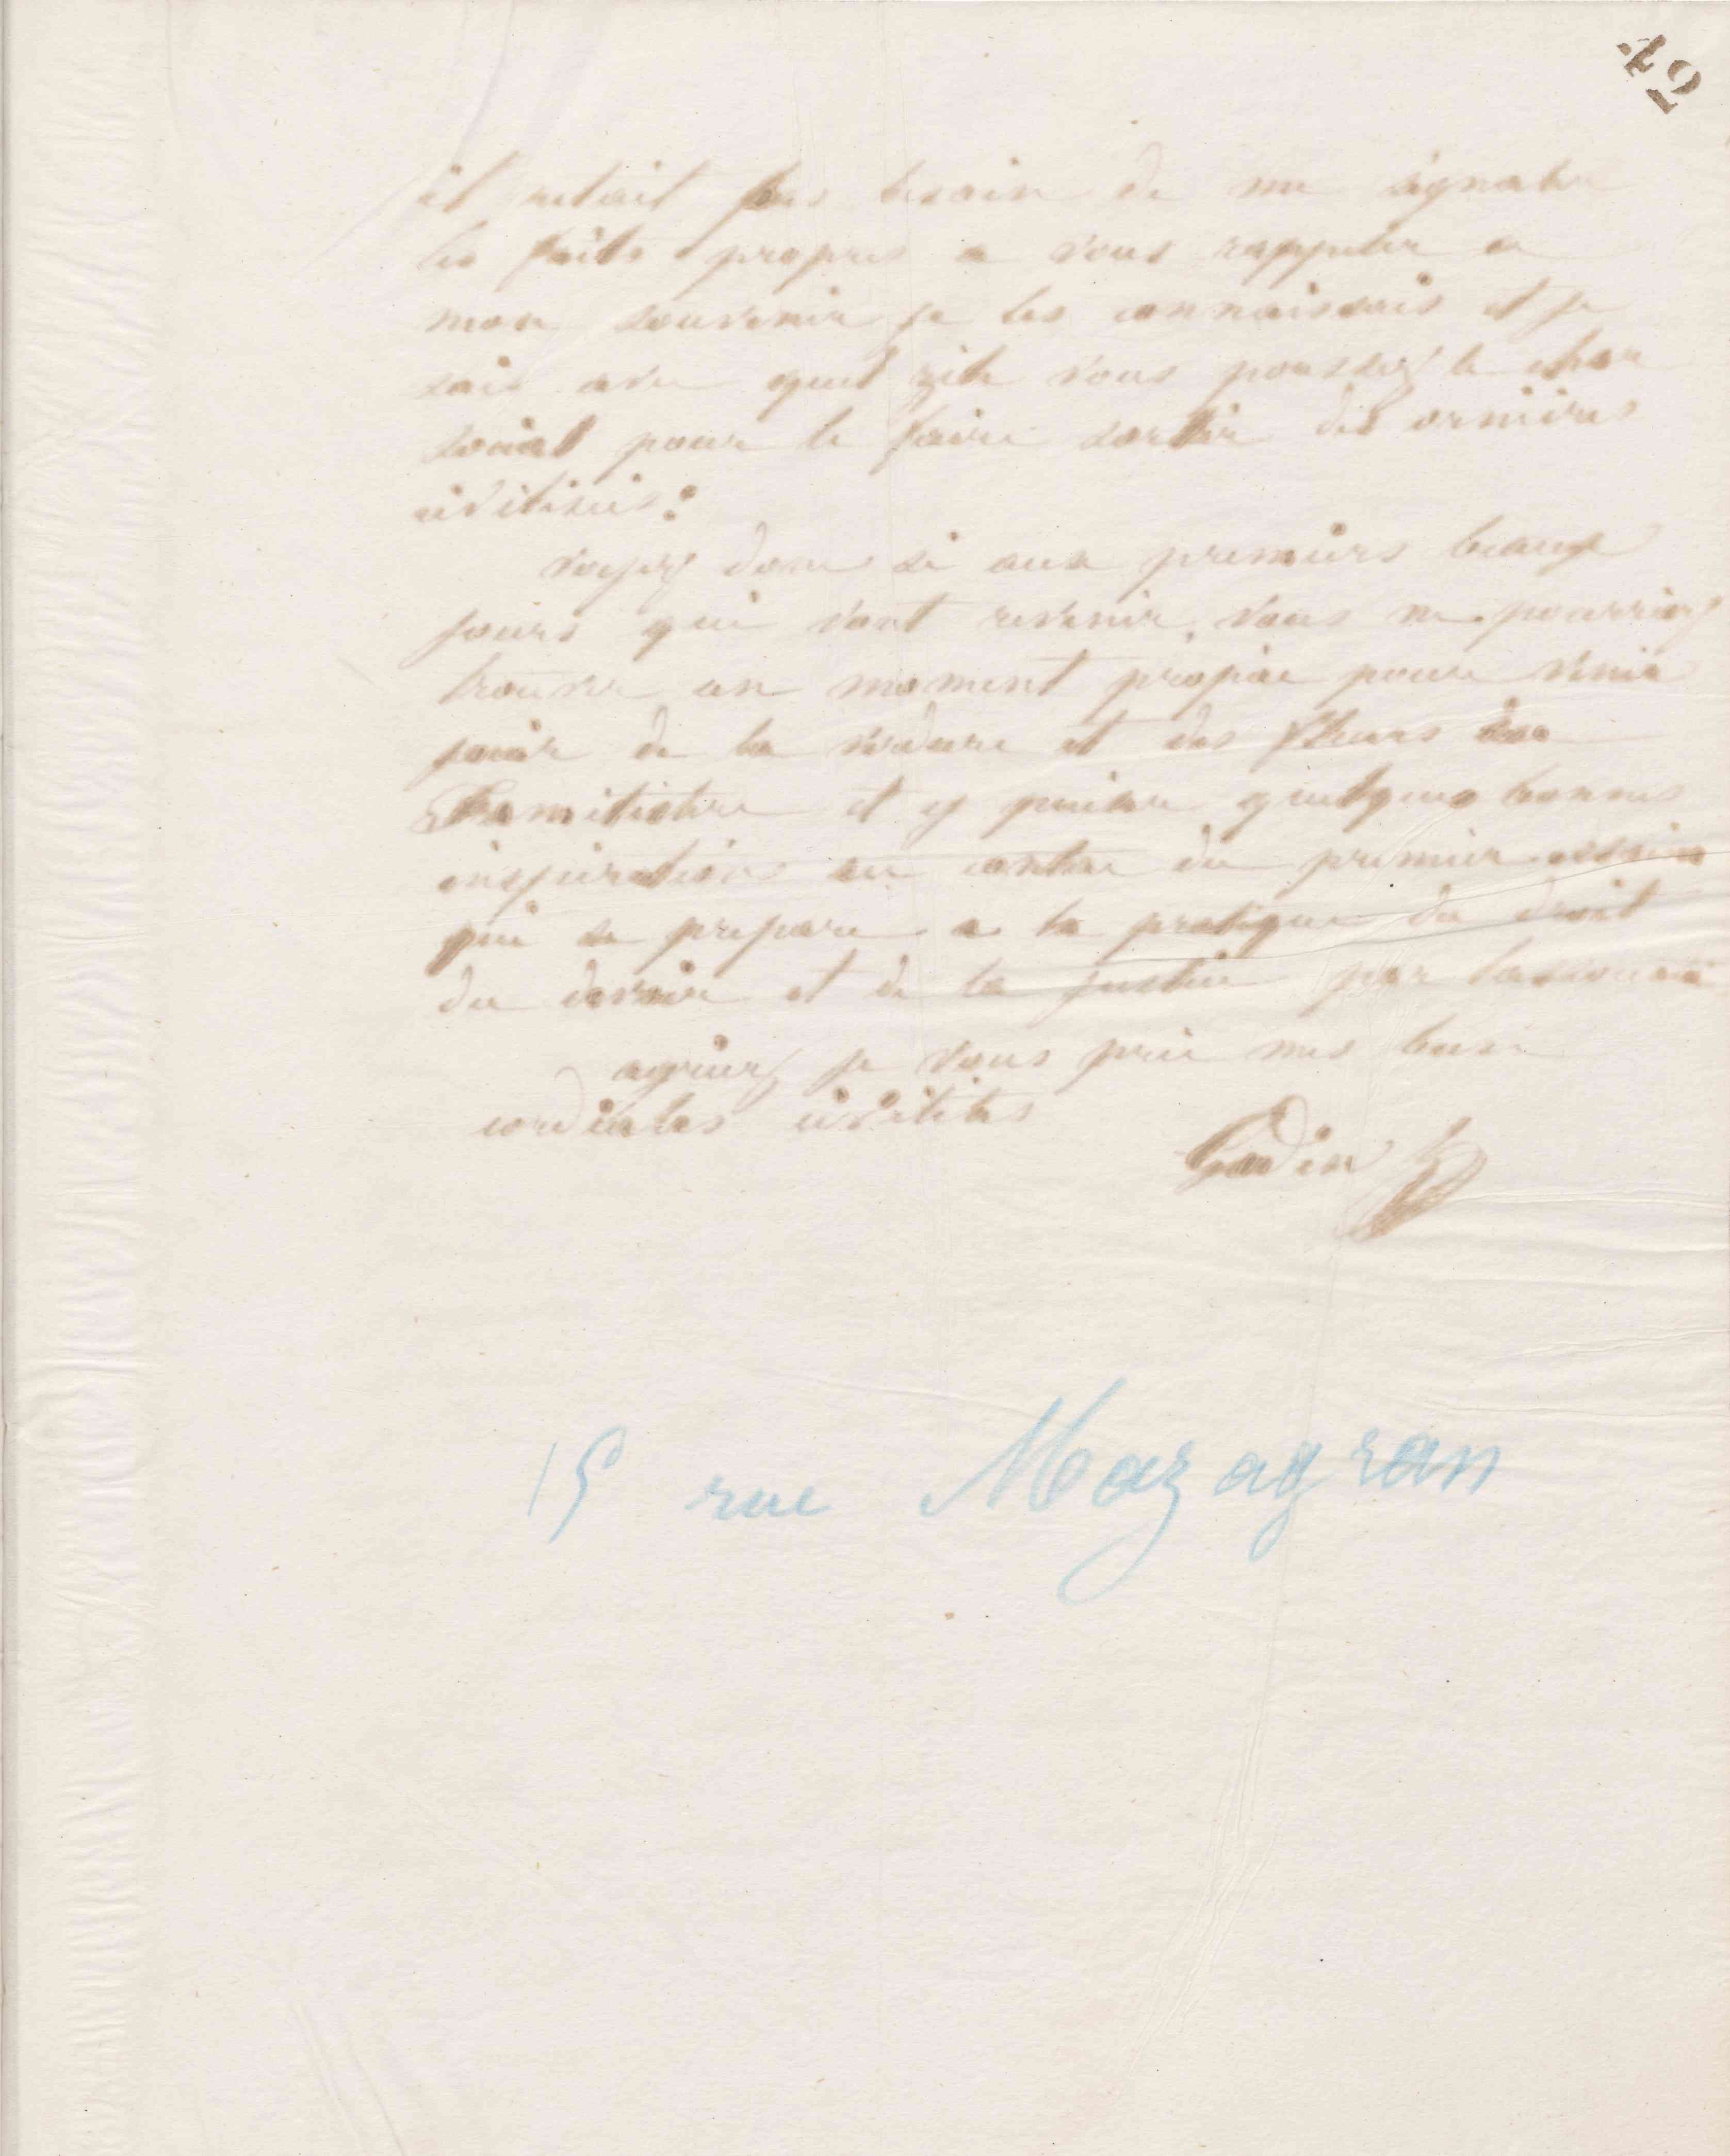 42
il netait pas besoin de me signaler
les faits propres a vous rappeler a
mon souvenir je les connaissais et je
sais avec quel zèle vous poussez le char
social pour le faire sortir des ornières
civilisées.
voyez donc si aux premiers beaux
jours qui vont revenir, vous ne pourriez
trouver un moment propice pour venir
jouir de la verdure et des fleurs du
Familistère et y puiser quelques bonnes
inspirations au contact du premier essaim
qui se prepare a la pratique du droit
du devoir et de la justice par
agréez je vous prie mes bien
cordiales civilités
Godin
15 rue Mazagran